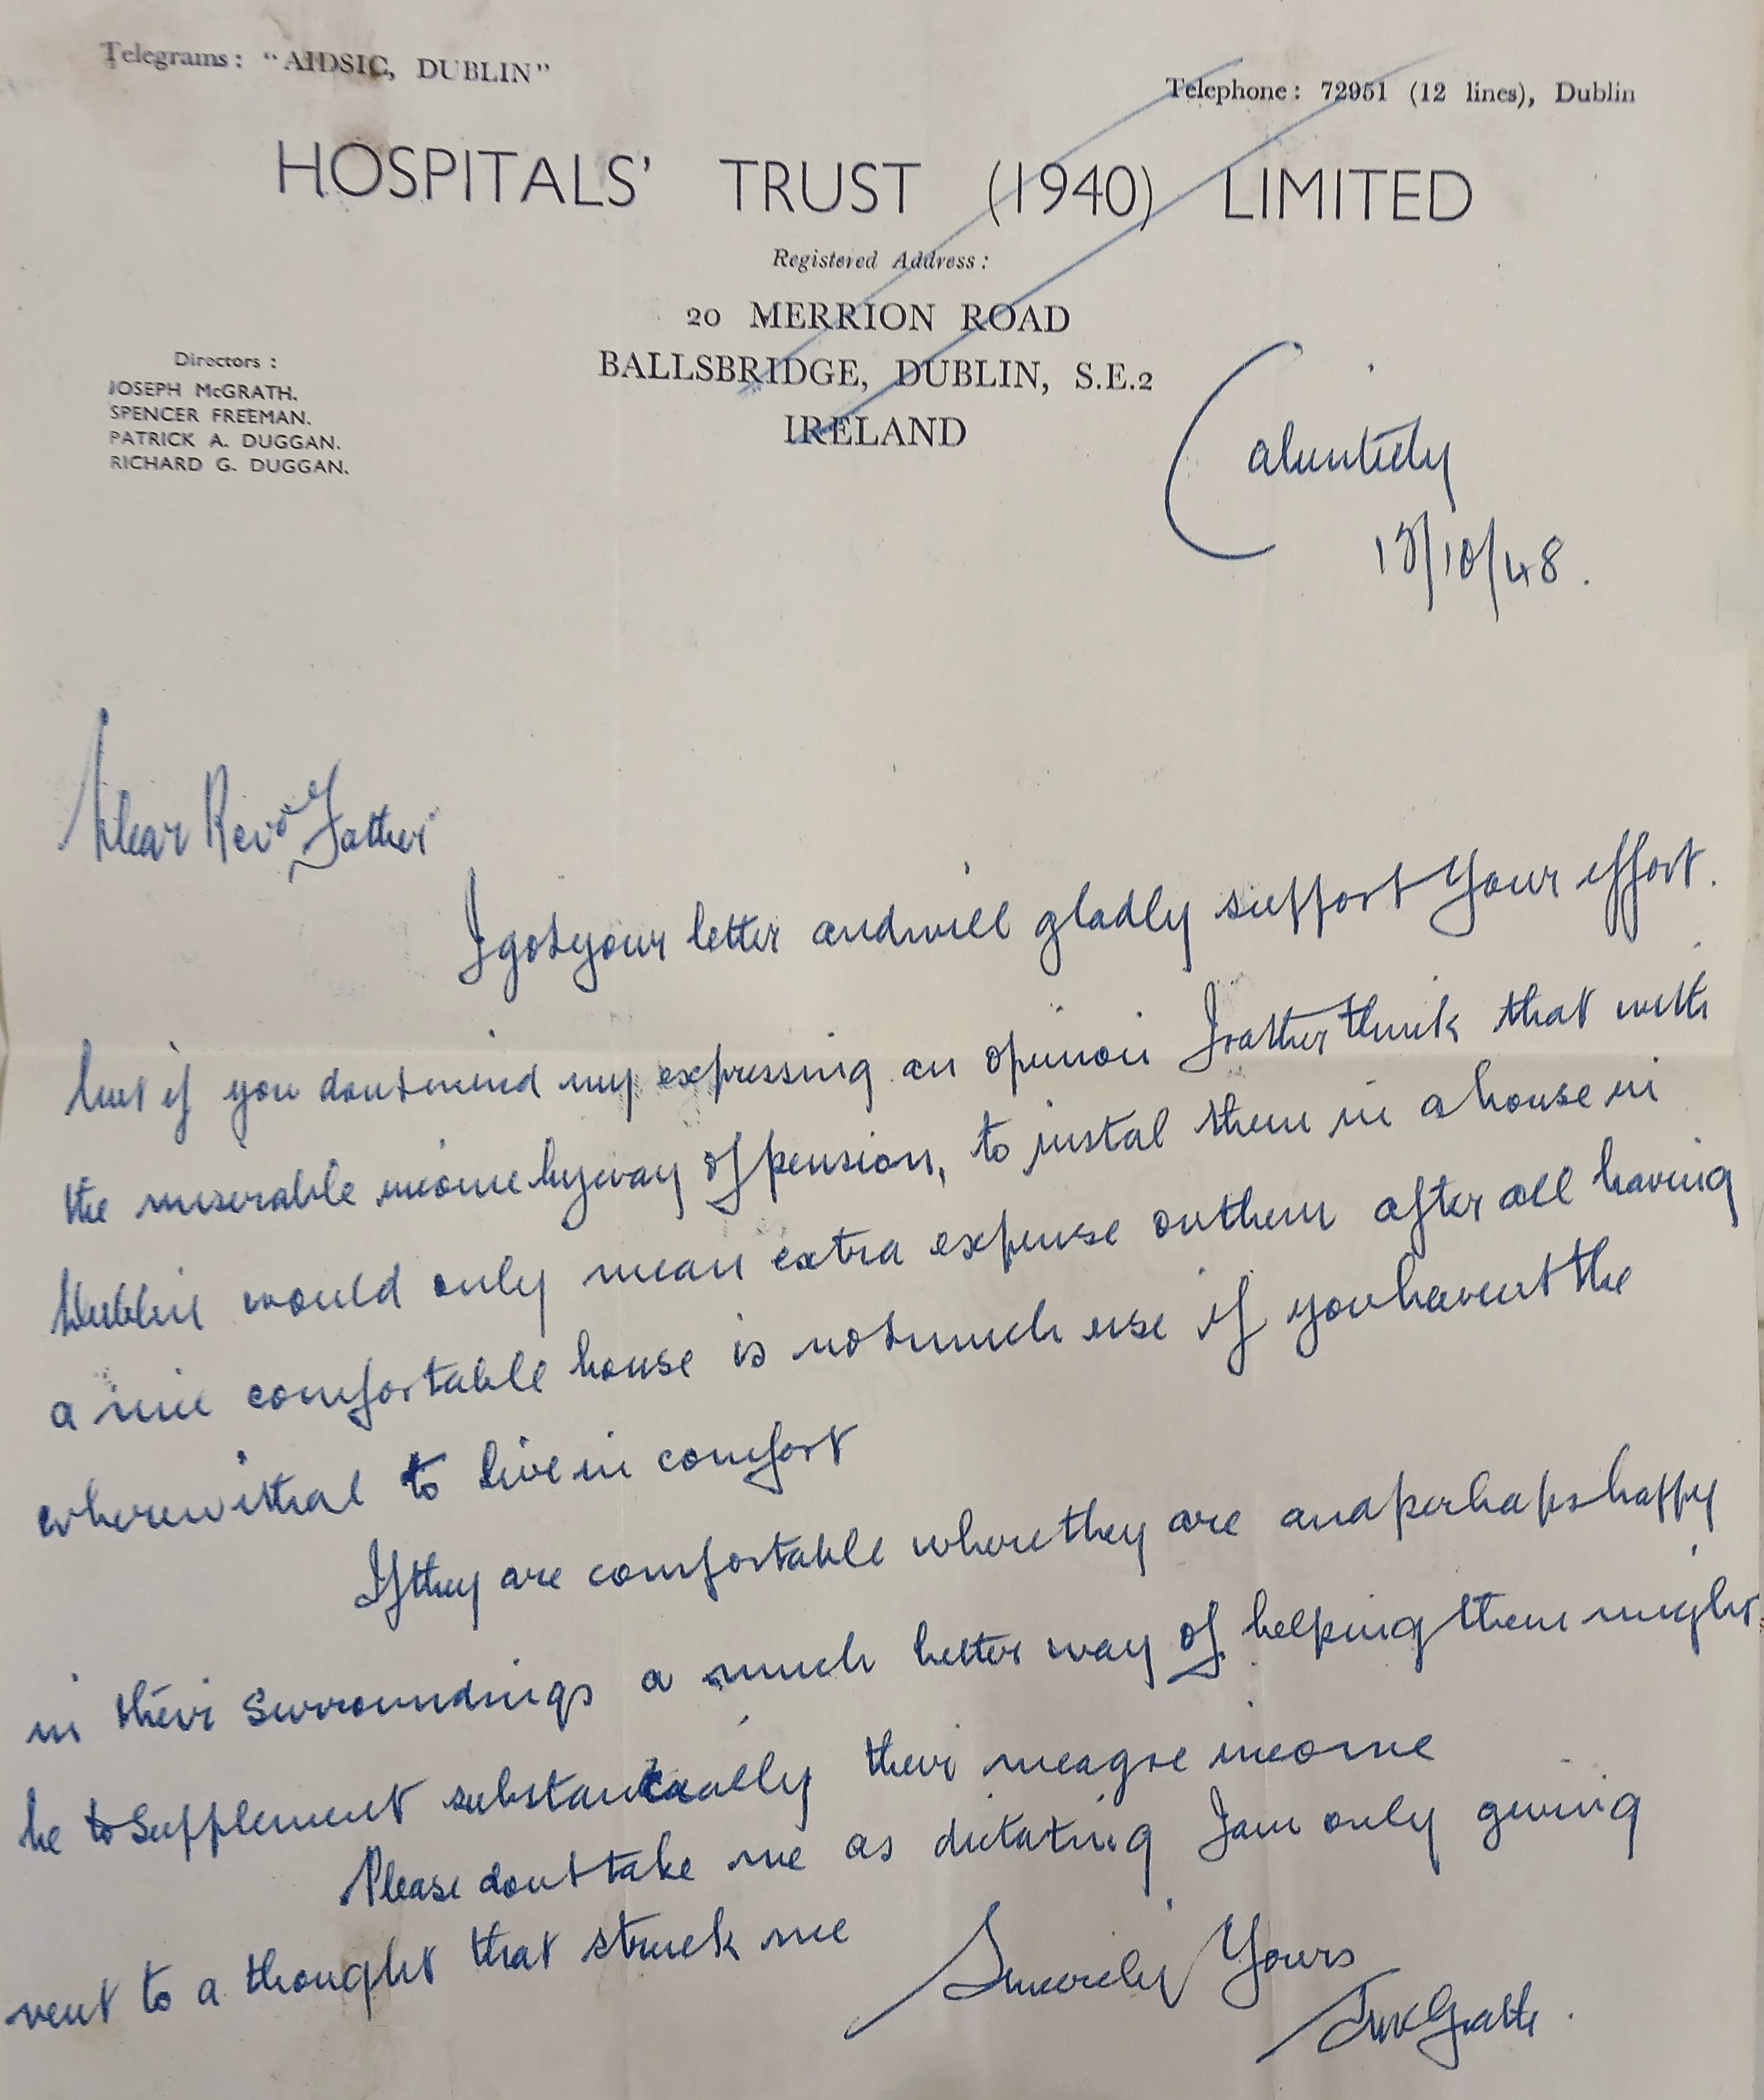 Telegrams: "AIDSIC, DUBLIN"
Telephone: 72951 (12 lines), Dublin
HOSPITALS' TRUST (1940) LIMITED
Registered Address:
20 MERRION ROAD
BALLSBRIDGE, DUBLIN, S.E.2
IRELAND
Directors:
JOSEPH McGRATH.
SPENCER FREEMAN.
PATRICK A. DUGGAN.
RICHARD G. DUGGAN.
Cabinteely
/10/48.
Dear Revd Father
I got your letter and will gladly support your effort.
but if you dont mind my expressing an opinion I rather think that with
the miserable income by way of pension, to instal them in a house in
Dublin would only mean extra expense on them after all having
a nice comfortable house is not much use if you havent the
wherewithal to live in comfort
If they are comfortable where they are and perhaps happy
in their surroundings a much better way of helping them might
be to supplement substantially their meagre income
Please dont take me as dictating I am only giving
vent to a thought that struck me
Sincerely Yours
J McGrath.